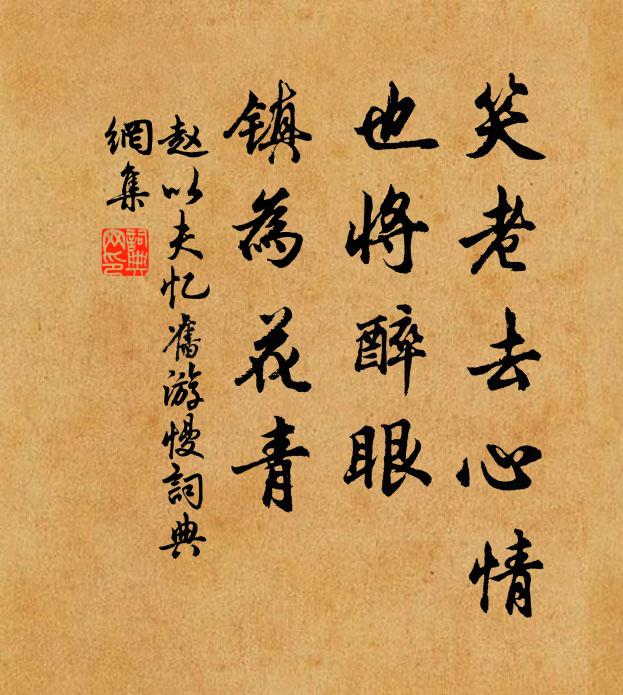 笑老去心情
也将醉眼
镇為花青
赵以夫忆舊游慢詞典
網集
詞典
网印